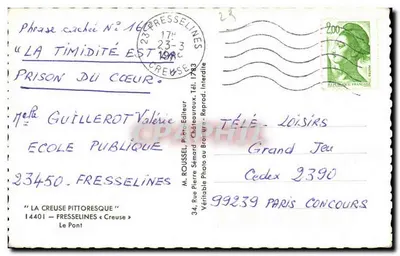 Phrase cachée N° 16
"LA TIMIDITÉ EST UNE
PRISON DU CŒUR.
Melle GUILLEROT Valérie
ECOLE PUBLIQUE
23450. FRESSELINES
"LA CREUSE PITTORESQUE"
14401 - FRESSELINES « Creuse »
Le Pont
23 FRESSELINES
17H
23-3
CREUSE
23
2,00
M. ROUSSEL, Editeur
34, Rue Pierre Sémard - Châteauroux. Tél.
Véritable Photo au Bromure - Reprod. Interdite
TÉLÉ-LOISIRS
Grand Jeu
Cedex 2390
99239 PARIS CONCOURS